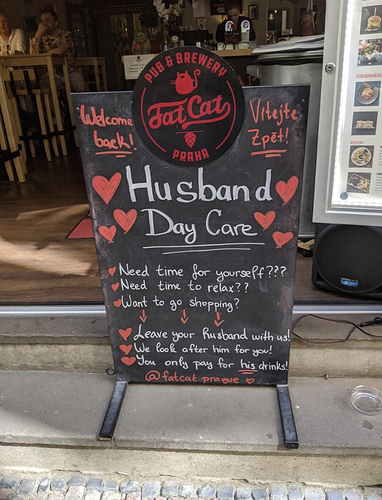 PUB & BREWERY
Fat Cat
PRAHA
Welcome back!
Vítejte Zpět!
Husband
Day Care
Need time for yourself???
Need time to relax??
Want to go shopping?
Leave your husband with us!
We look after him for you!
You only pay for his drinks!
@fatcat prague